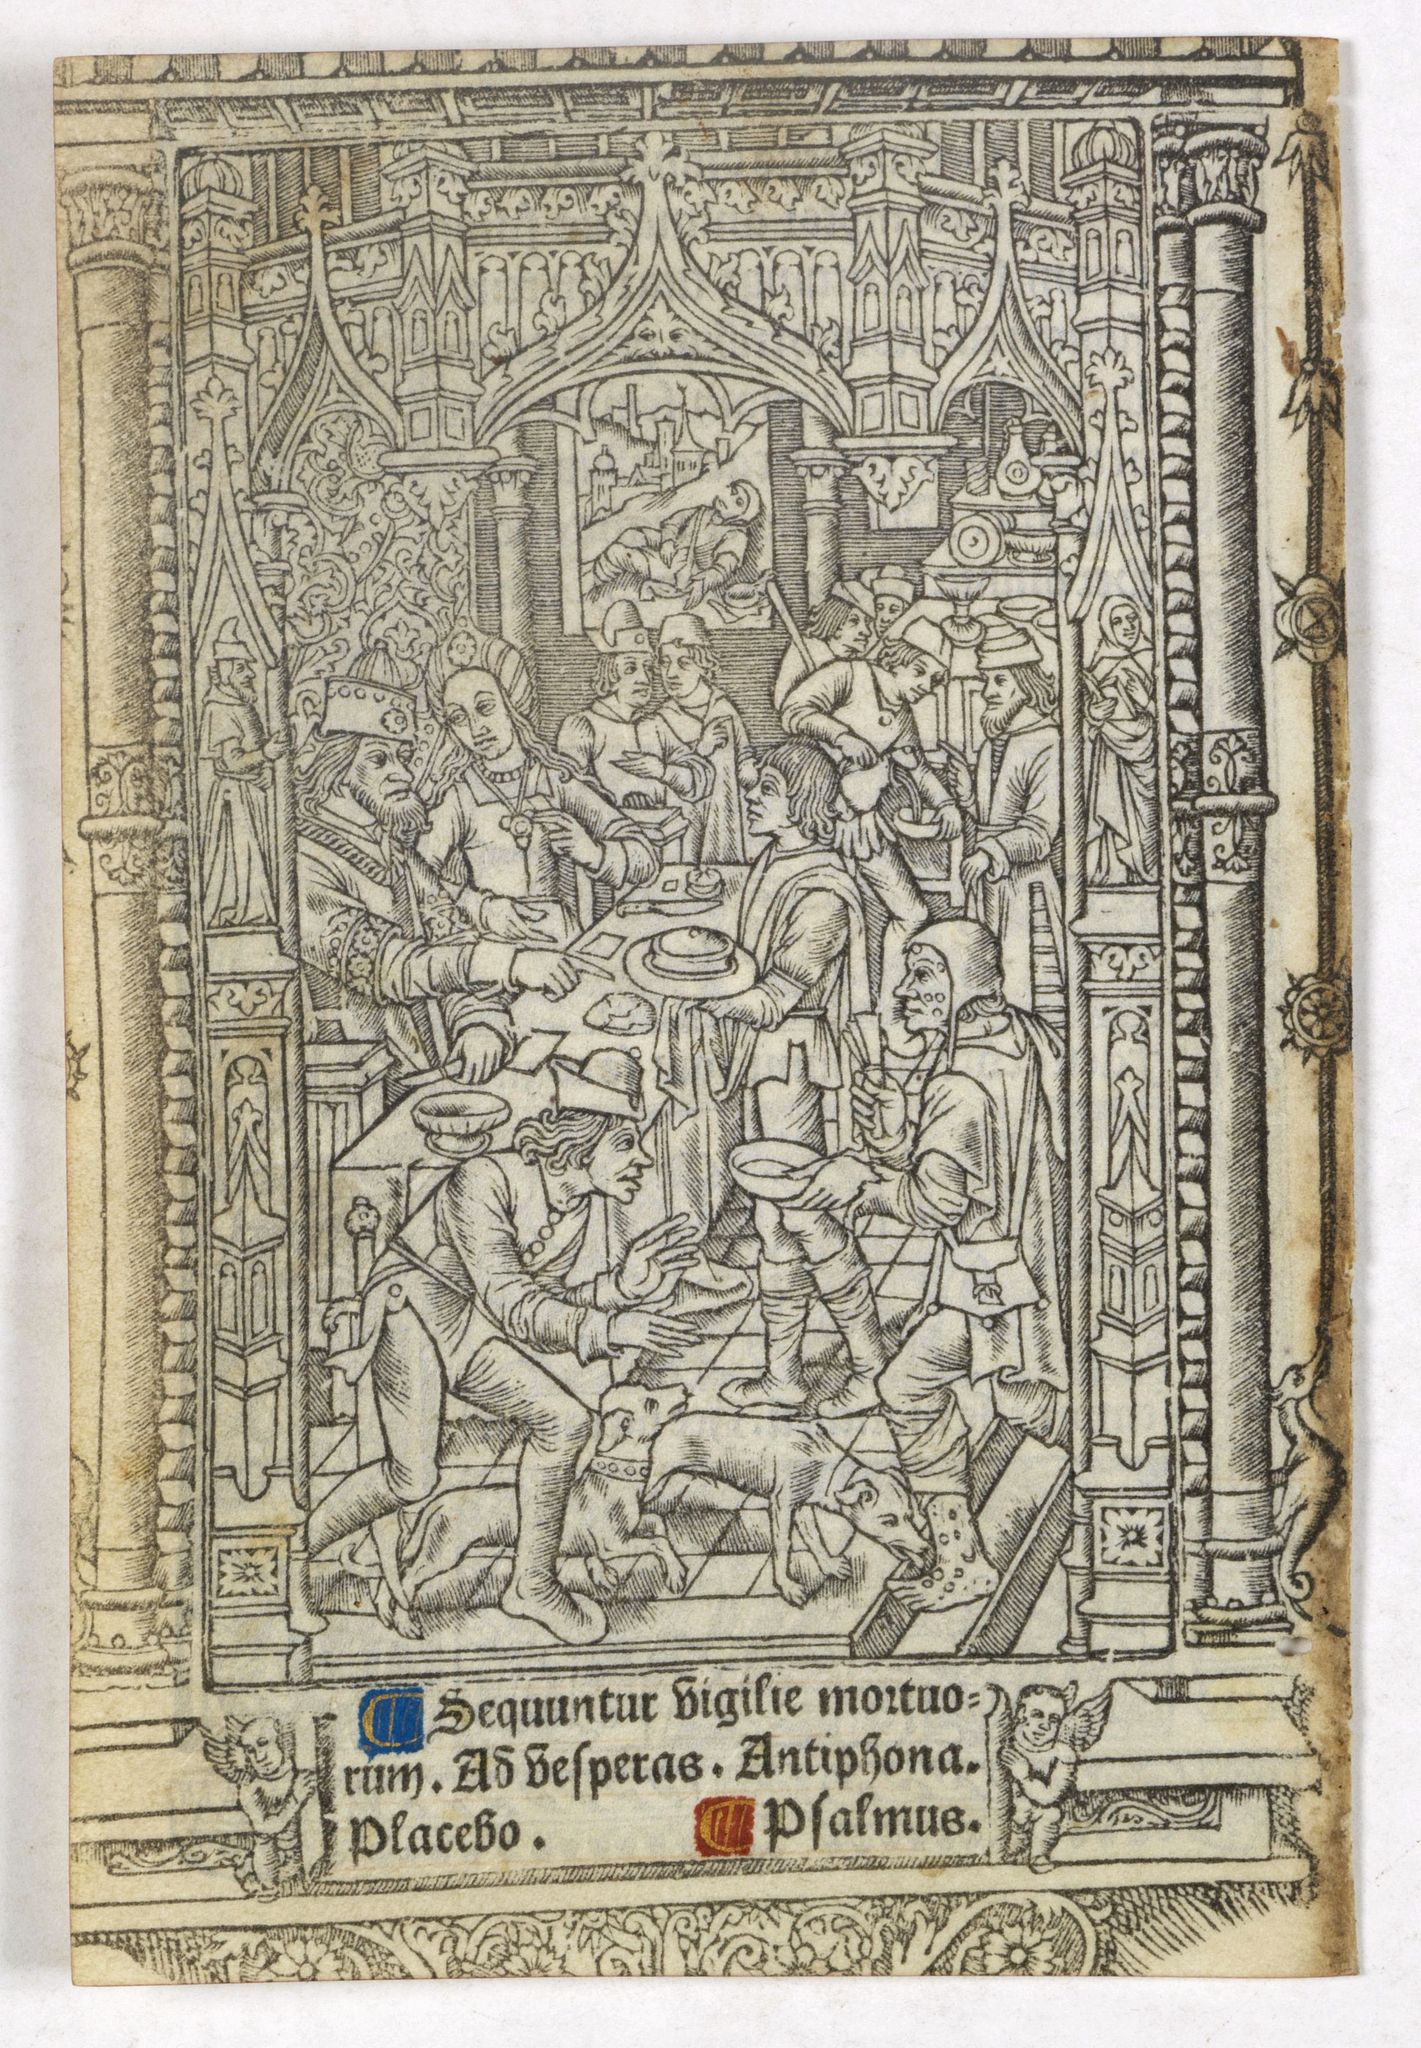 Sequuntur vigilie mortuo=
rum. Ad vesperas. Antiphona.
Placebo. Psalmus.